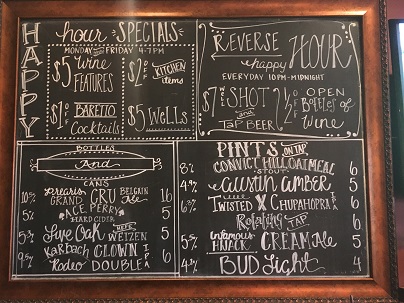 HAPPY hour SPECIALS
MONDAY FRIDAY 4-7PM
$5 Wine FEATURES
$2 OFF KITCHEN items
$1 OFF BARETTO Cocktails
$5 Wells
REVERSE
happy HOUR
EVERYDAY 10PM-MIDNIGHT
$7 SHOT and TAP BEER
1/2 OFF OPEN Bottles of wine
BOTTLES
And
CANS
GRAND CRU BELGIAN Ale 16
5% ACE PERRY HARD CIDER 5
Live Oak HEFE WEIZEN 5
Karbach CLOWN
Rodeo DOUBLE IPA 6
PINTS ON TAP
8% CONVICT HILL OATMEAL STOUT 6
AUSTIN AMBER 5
TWISTED X CHUPAHOPRA IPA 6
Rotating TAP 6
INFAMOUS HIJACK CREAM Ale 5
BUD Light 4